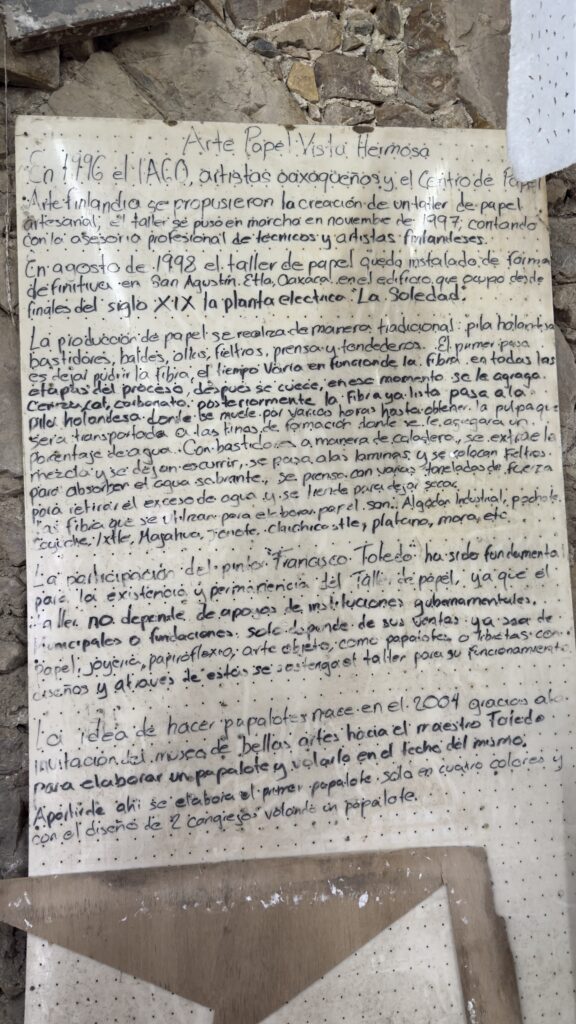 Arte Papel Vista Hermosa
En 1996 el IAGO, artistas oaxaqueños y el Centro de Papel
Arte finlandia se propusieron la creación de un taller de papel
artesanal, el taller se puso en marcha en noviembre de 1997, contando
con la asesoria profesional de técnicos y artistas finlandeses.
En agosto de 1998 el taller de papel quedo instalado de forma
definitiva en San Agustín, Etla, Oaxaca. en el edificio que ocupo desde
finales del siglo XIX la planta electrica "La Soledad".
La producción de papel se realiza de manera tradicional: pila holandesa
bastidores, baldes, ollas, fieltros, prensa y tendederos. El primer paso
es dejar pudrir la fibra, el tiempo varia en función de la fibra. en todas las
etapas del proceso, después se cuece, en ese momento se le agrega
Ceniza, cal, carbonato. posteriormente la fibra ya lista pasa a la
pila holandesa donde se muele por varias horas hasta obtener la pulpa que
sera transportada a las tinas de formación donde se le agregara un
porcentaje de agua. Con bastidores a manera de coladero, se extrae la
mezcla y se dejan escurrir, se pasa a las laminas y se colocan fieltros
para absorber el agua sobrante, se prensa con varias toneladas de fuerza
para retirar el exceso de agua y se tiende para dejar secar.
Las fibra que se utilizan para elaborar papel son: Algodón Industrial, pochote,
Ixtle, Majahua, chichicastle, platano, mora, etc
La participación del pintor "Francisco Toledo" ha sido fundamental
para la existencia y permanencia del Taller de papel, ya que el
taller no depende de apoyos de instituciones gubernamentales,
municipales o fundaciones, solo depende de sus ventas ya sea de
papel; joyeria, papiroflexia, arte objeto, como papalotes o libretas con
diseños y através de estos se sostenga el taller para su funcionamiento
La idea de hacer papalotes nace en el 2004 gracias a la
invitación del museo de bellas artes hacia el maestro Toledo
para elaborar un papalote y volarlo en el techo del mismo.
Apartir de ahi se elabora el primer papalote solo en cuatro colores y
con el diseño de 2 cangrejos volando un papalote.